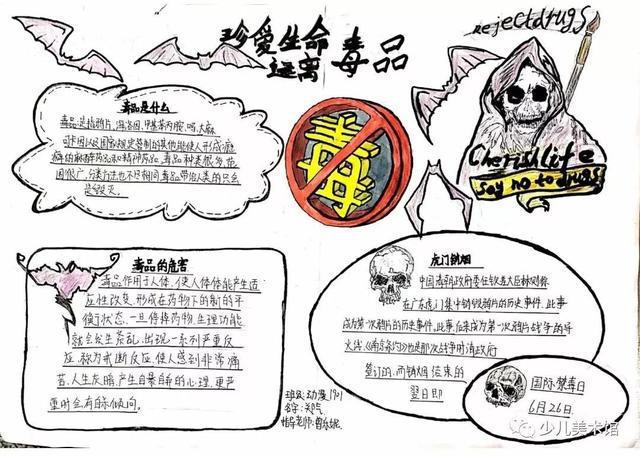 珍爱生命
远离毒品
rejectdrugs
毒品是什么
毒品是指鸦片、海洛因、甲基苯丙胺、吗、大麻
可卡因以及国家规定管制的其他能使人形成瘾
癖的麻醉药品和精神药品。毒品种类很多,范
围很广,分类方法也不尽相同毒品带给人类的只会
是毁灭。
毒
Cherishlife
Say no to drugs
毒品的危害
毒品作用于人体,使人体体能产生适
应性改变,形成在药物下的新的平
衡状态,一旦停掉药物,生理功能
就会发生紊乱,出现一系列严重反
应,称为戒断反应,使人感到非常痛
苦,人生灰暗,产生自暴自弃的心理,更严
重时会有自杀倾向。
虎门销烟
中国清朝政府委任钦差大臣林则徐
在广东虎门集中销毁鸦片的历史事件,此事
成为第一次鸦片的历史事件,此事后来成为第一次鸦片战争的导
火线,《南京条约》也是那次战争时清政府
签订的,而销烟结束的
翌日即
国际禁毒日
6月26日
班级:动漫1901
名字:
辅导老师:
少儿美术馆